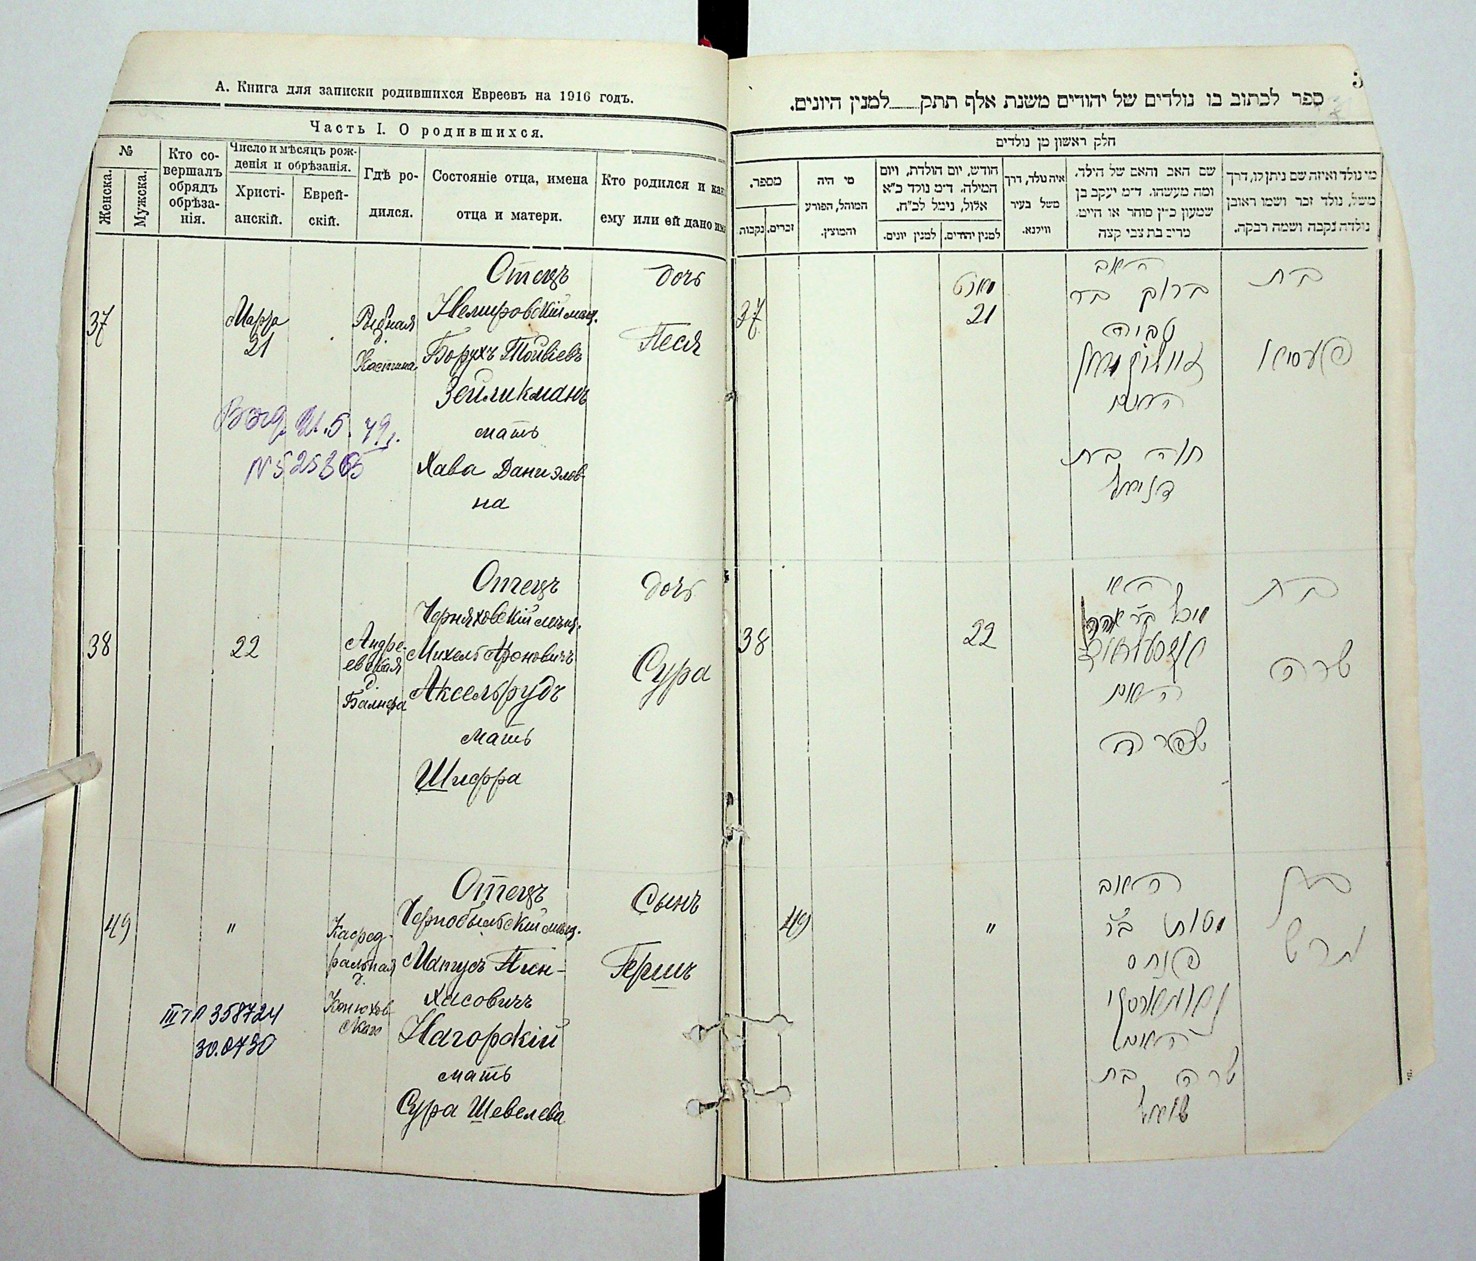 А. Книга для записки родившихся Евреевъ на 1916 годъ.
Часть I. О родившихся.
№
Женска.
Мужска.
Кто со-
вершалъ
обрядъ
обрѣза-
нія.
Число и мѣсяцъ рож-
денія и обрѣзанія.
Христі-
анскій.
Еврей-
скій.
Гдѣ ро-
дился.
Состояніе отца, имена
отца и матери.
Кто родился и как
ему или ей дано им
37
Марта
21
Рыбная
Отецъ
Немировскій мѣщ.
Борухъ Тойвіевъ
Зейликманъ
мать
Хава Даніэлов-
на
дочь
Песя
21.5.
38
22
Андре-
евская
д.
Отецъ
Черняховскій мѣщ.
Михель Ароновичъ
Аксельрудъ
мать
Шифра
дочь
Сура
49
"
Каѳед-
ральная
д.
Конюхов-
скаго
Отецъ
Чернобыльскій мѣщ.
Матусъ Пин-
хасовичъ
Нагорскій
мать
Сура Шевелева
Сынъ
Гершъ
358724
ספר לכתוב בו נולדים של יהודים משנת אלף תתק___למנין היונים.
חלק ראשון מן נולדים
מספר.
נקבות
זכרים.
מי היה
המוהל, הפורע
והמוצץ.
חודש, יום הולדת, ויום
המילה. ד״מ נולד כ״א
אלול, נימל לכ״ח.
למנין יונים.
למנין יהודים.
איה נולד, דרך
משל בעיר
ווילנא.
שם האב והאם של הילד.
ומה מעשהו. ד״מ יעקב בן
שמעון כ״ץ סוחר או חייט.
מרים בת צבי קצה
מי נולד ואיזה שם ניתן לו, דרך
משל, נולד זכר ושמו ראובן
נולדה נקבה ושמה רבקה.
37
מארט
21
האב
ברוך בר
טביה
זייליקמאן
האם
חוה בת
דניאל
בת
פעסיא
38
22
האב
האם
שפרה
בת
שרה
49
"
האב
מטות בר
פנחס
האם
שרה בת
בן
הרש